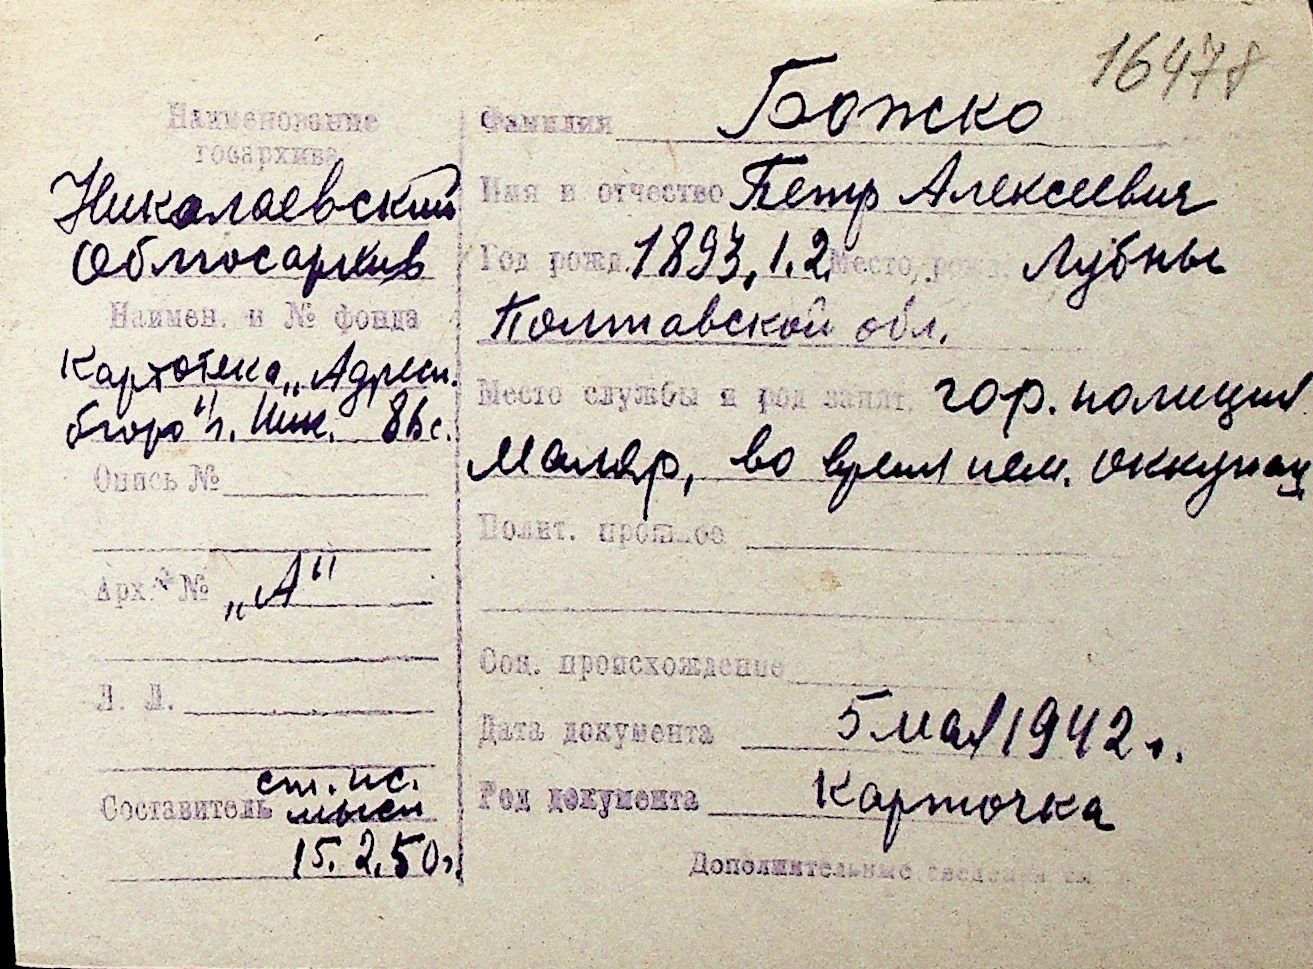 16478
Наименование
госархива
Николаевский
Облгосархив
Наимен. и № фонда
Картотека „Адресн.
бюро" г. Ник.
Опись №
Арх. № „А"
Л. Л.
ст. ис.
Составитель
15.2.50г.
Фамилия Божко
Имя и отчество Петр Алексеевич
Год рожд. 1893, 1.2 Место рожд. Лубны
Полтавской обл.
Место службы и род занят. гор. полиция
Маляр, во время нем. оккупац
Полит. прошлое
Соц. происхождение
Дата документа 5 мая 1942 г.
Род документа Карточка
Дополнительные сведения см